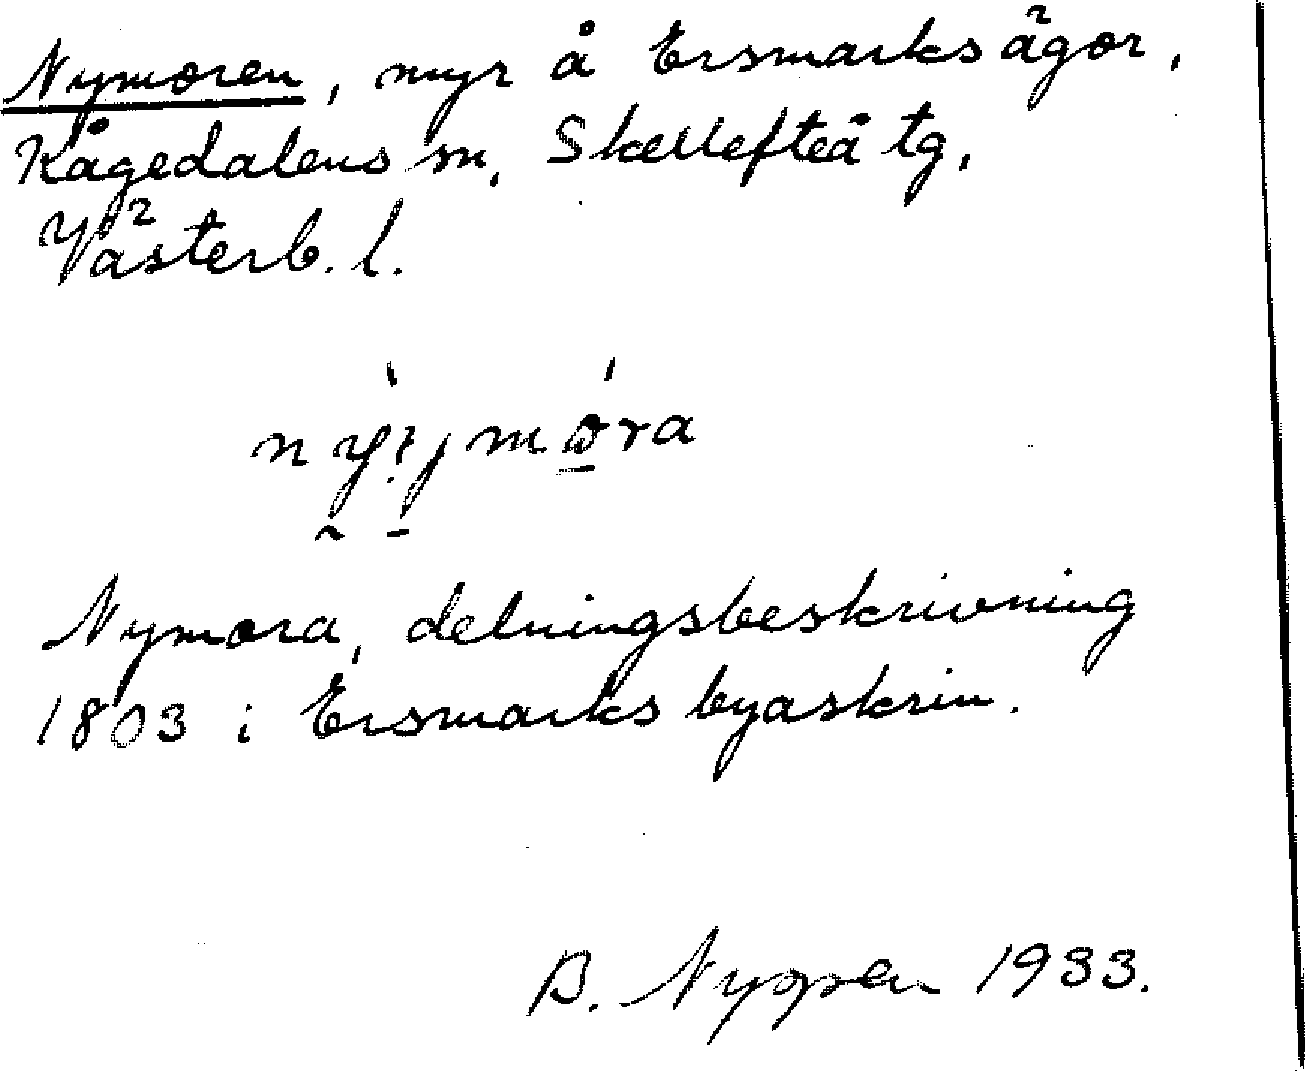 Nymoren, myr å Ersmarks ägor,
Kågedalens sn, Skellefteå tg,
Västerb. l.
Nymora, delningsbeskrivning
1803 i Ersmarks byaskrin.
B. Nygren 1933.